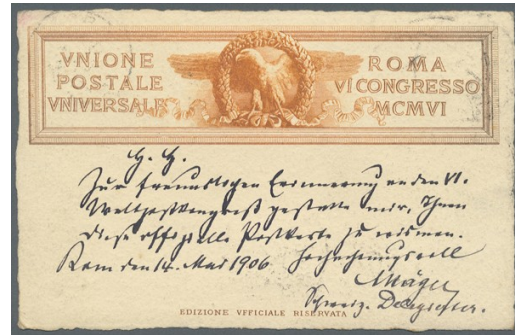 VNIONE
POSTALE
VNIVERSALE
ROMA
VI CONGRESSO
MCMVI
H. H.
Zur freundlichen Erinnerung an den VI.
Weltpostkongreß gestatte mir, Ihnen
diese offizielle Postkarte zu widmen.
Rom den 14. Mai 1906 Hochachtungsvoll
Schweiz. Delegierter.
EDIZIONE VFFICIALE RISERVATA